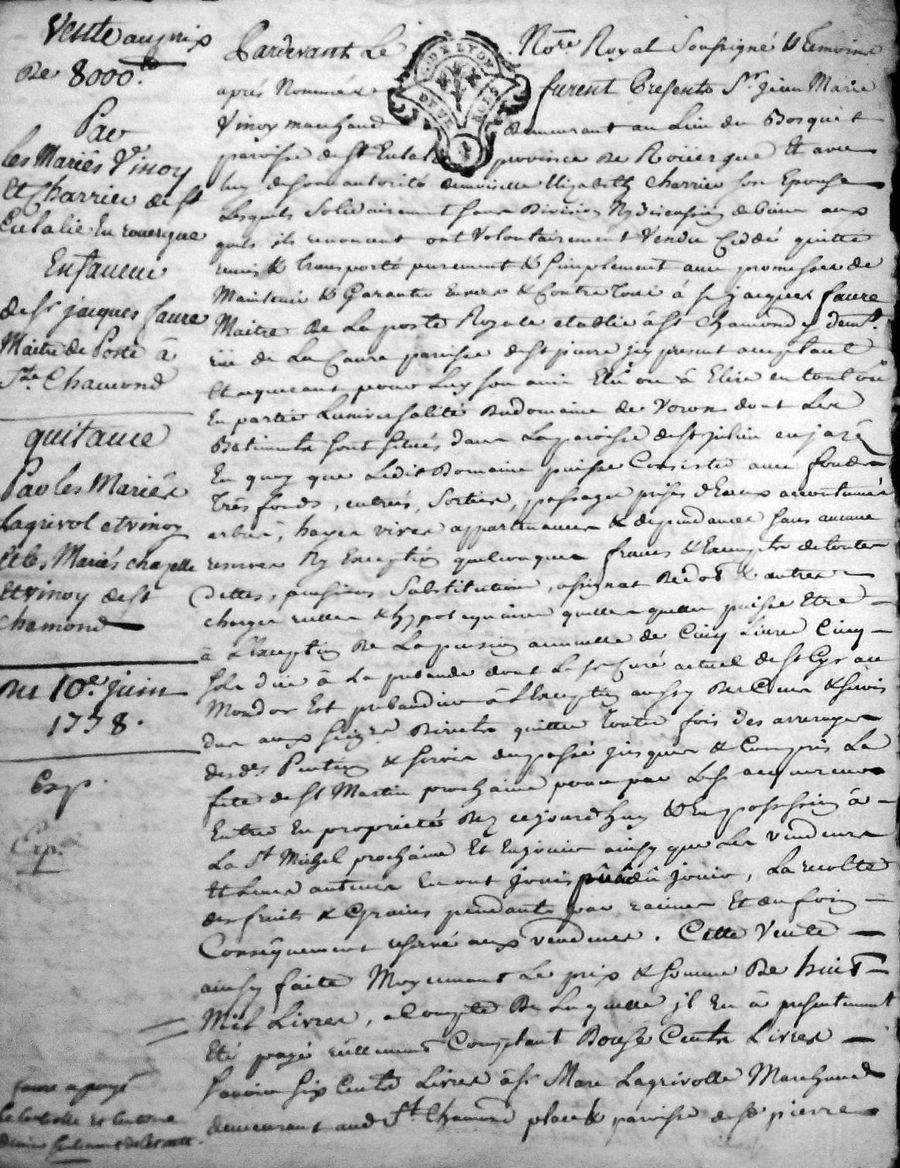 Vente au prix
De 8000.tt
Par
les Mariés Vinoy
Et Charrier de St
Eulalie En rouergue
En faveur
de Sr jacques faure
Maitre de Poste à
St. Chamond
quitance
Par les Mariés
Lagrivol et vinoy
Et les Mariés chapelle
Et vinoy de St
chamond
Du 10.e juin
1778.
Exp.
Exp.
faure a payé
Pardevant Le No.re Royal Soussigné & temoins
après Nommés furent Presents Sr. jean Marie
Vinoy marchand demeurant au Lieu du Bosquet
paroisse de St Eulalie province de Roüergue Et avec
luy de son autorité demoiselle Elizabeth Charrier son Epouse
Lesquels Solidairement sans Division Ny discussion de biens aux
quels ils renoncent ont Volontairement Vendu Cédé quitté
remis & transporté purement & simplement avec promesse de
Maintenir & Garantir Envers & Contre tous à sr jacques faure
Maitre de La poste Royale etablie à St Chamond y demt.
rüe de La paroisse de St pierre icy present acceptant
Et acquerant pour Luy son ami Elu ou à Elire en tout ou
En partie Luniversalité Du domaine de Voron dont Les
Batiments sont situés dans La paroisse de St julien en jarêt
En quoy que Ledit Domaine puisse Consister avec fonds
très fonds, entrées, Sorties, passages prises d'Eaux accoutumées
arbres, hayes vives appartenances & dependances sans aucune
reserve Ny Exception quelconque francs & Exempts de toutes
Dettes, pensions Substitution, assignat de dot & autres
charges reelles & hypotequaires quelles quelles puissent Etre
à L'Exception De La pension annuelle de Cinq Livres Cinq
sols düe à La prebande dont Le sr Curé actuel de St Cyr au
Mondor Est prebandier à L'Exception aussy Des Cens & servis
dus aux seig.rs Directs quitte toutte fois des arrerages
des ds. Pention & servis du passé jusques & Compris La
fete de St Martin prochaine pour par Led. sr acquereur
Entrer En propriété Dez cejourdhuy & En possession à
La St Michel prochaine Et En jouir ainsy que Les vendeurs
Et Leurs auteurs En ont joui pû ou dû jouir, La recolte
des fruits & Grains pendants par racines Et du foin
Consequemment reservé aux vendeurs. Cette Vente
ainsy faite Moyennant Le prix & somme De huit
Mil Livres, a Compte De Laquelle il En à presentement
Eté payé réellement Comptant Douze Cents Livres
Savoir six Cents Livres à Sr. Marc Lagrivolle Marchand
demeurant aud. St. Chamond place & paroisse de St pierre